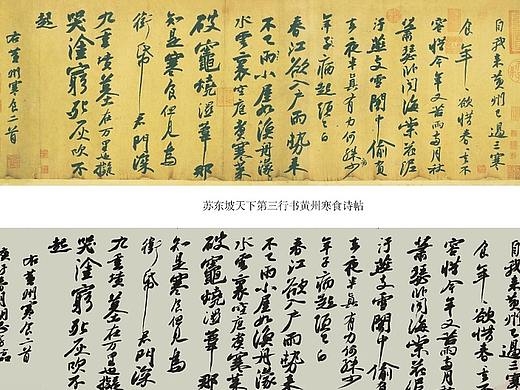 自我來黃州已過三寒
食年〻欲惜春〻去不
容惜今年又苦雨兩月秋
蕭瑟臥聞海棠花泥
汙燕支雪闇中偷負
去夜半真有力何殊少
年子病起須已白
春江欲入戶雨勢來
不已雨小屋如漁舟濛〻
水雲裏空庖煮寒菜
破竈燒濕葦那
知是寒食但見烏
銜帋君門深
九重墳墓在万里也擬
哭塗窮死灰吹不
起
右黃州寒食二首
苏东坡天下第三行书黄州寒食诗帖
自我來黃州已過三寒
食年〻欲惜春〻去不
容惜今年又苦雨兩月秋
蕭瑟臥聞海棠花泥
汙燕支雪闇中偷負
去夜半真有力何殊少
年子病起須已白
春江欲入戶雨勢來
不已雨小屋如漁舟濛〻
水雲裏空庖煮寒菜
破竈燒濕葦那
知是寒食但見烏
銜帋君門深
九重墳墓在万里也擬
哭塗窮死灰吹不
起
右黃州寒食二首